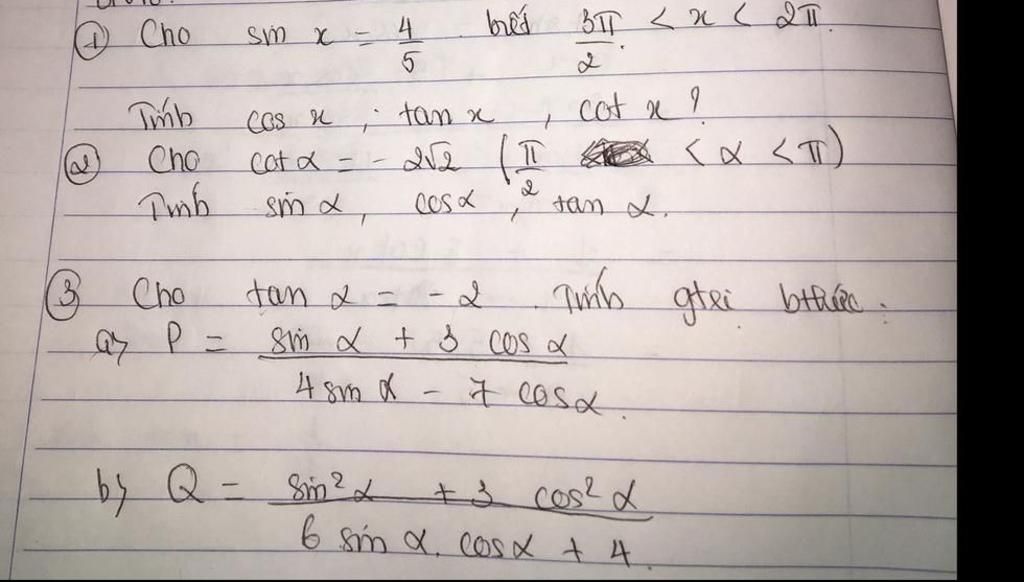 ① Cho sin x = 4/5 biết 3π/2 < x < 2π.
Tính cos x ; tan x , cot x ?
② Cho cot α = - 2√2 (π/2 < α < π)
Tính sin α, cos α , tan α.
③ Cho tan α = - 2 . Tính gtrị bthức :
a) P = (sin α + 3 cos α)/(4 sin α - 7 cos α).
b) Q = (sin² α + 3 cos² α)/(6 sin α. cos α + 4).